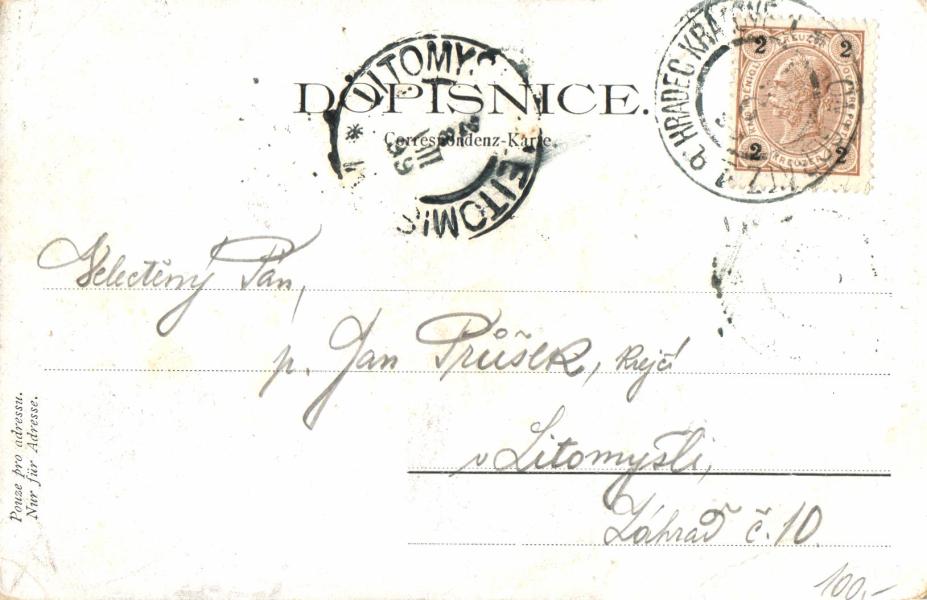 DOPISNICE.
Correspondenz-Karte
LITOMY
LEITOMIS
VIII
99
HRADEC KRÁLOVÉ
2 KREUZER 2
2 KREUZER 2
Velectěný Pán,
p. Jan Průšek, krejčí
v Litomyšli,
Záhraď č. 10.
Pouze pro adressu.
Nur für Adresse.
100,-